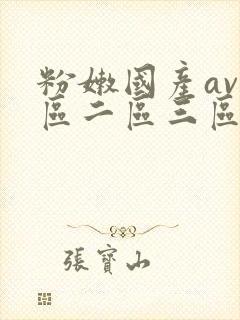 粉嫩國産av
區二區三區
張寶山